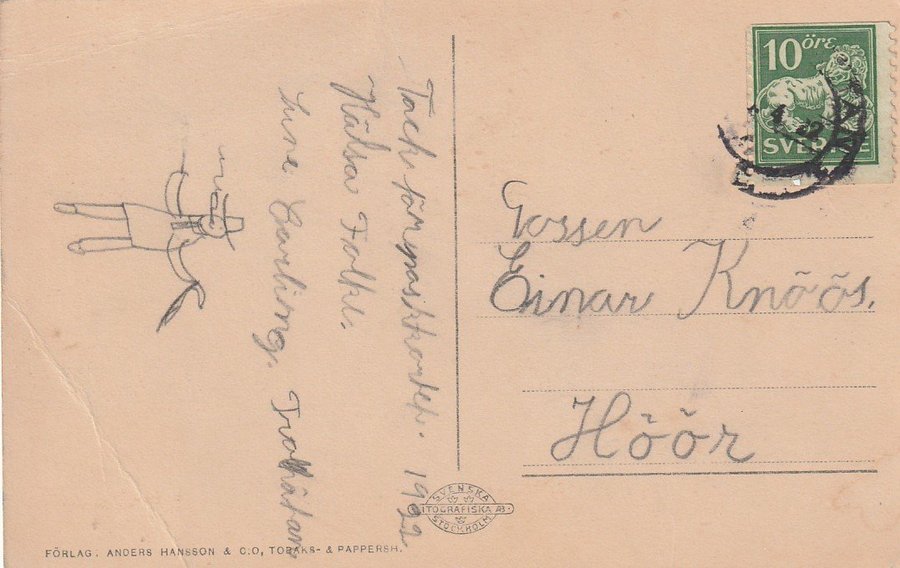 Tack för påskkortet. 1922
Hälsa Folke.
Carling. Trollhättan
10 öre
SVERIGE
Gossen
Einar Knöös.
Höör
SVENSKA
LITOGRAFISKA AB.
STOCKHOLM
FÖRLAG: ANDERS HANSSON & C:O, TOBAKS- & PAPPERSH.